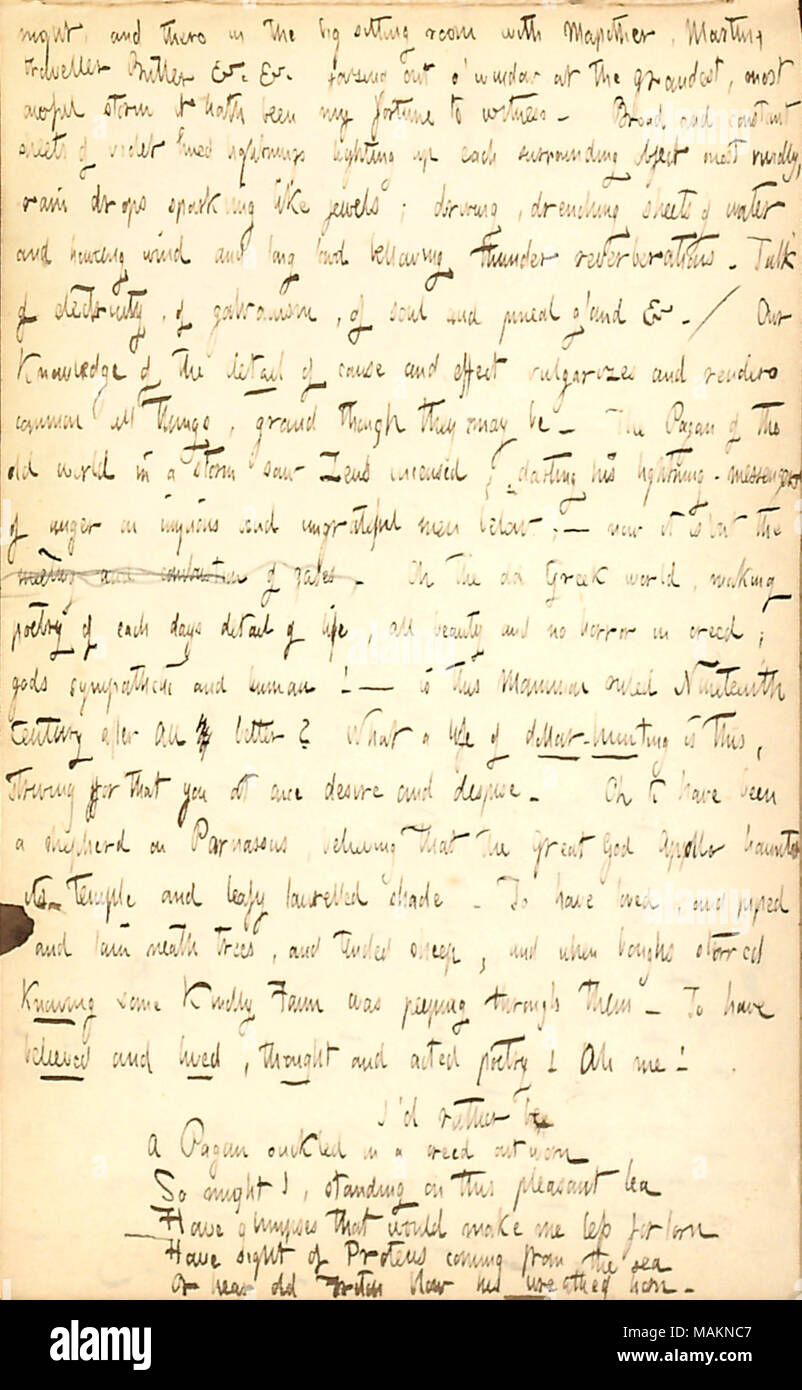 night, and there in the big sitting room with Mapother, Martin,
traveller Butler &c. &c. gazing out o' window at the grandest, most
awful storm it hath been my fortune to witness. Broad and constant
sheets of violet hued lightnings lighting up each surrounding object most vividly,
rain drops sparkling like jewels; driving, drenching sheets of water
and howling wind and long loud bellowing thunder reverberations. Talk
of electricity, of galvanism, of soul and pineal gland &c. / Our
Knowledge of the detail of cause and effect vulgarizes and renders
common all things, grand though they may be. The Pagan of the
old world in a storm saw Zeus incensed, darting his lightning-messengers
of anger on impious and ungrateful men below; — now it is but the
meeting and combustion of gases. Oh the old Greek world, making
poetry of each days detail of life, all beauty and no horror in creed,
gods sympathetic and human! — is this Mammon ruled Nineteenth
Century after all better? What a life of dollar-hunting is this,
striving for that you at once desire and despise. Oh to have been
a shepherd on Parnassus, believing that the Great God Apollo haunted
its temple and leafy laurelled shade. To have loved, and piped
and lain neath trees, and tended sheep, and when boughs stirred
Knowing some Kindly Faun was peeping through them. To have
believed and lived, thought and acted poetry! Ah me!
I'd rather be
A Pagan suckled in a creed outworn
So might I, standing on this pleasant lea
Have glimpses that would make me less forlorn
Have sight of Proteus coming from the sea
Or hear old Triton blow his wreathed horn.
alamy
alamy stock photo
MAKNC7
www.alamy.com